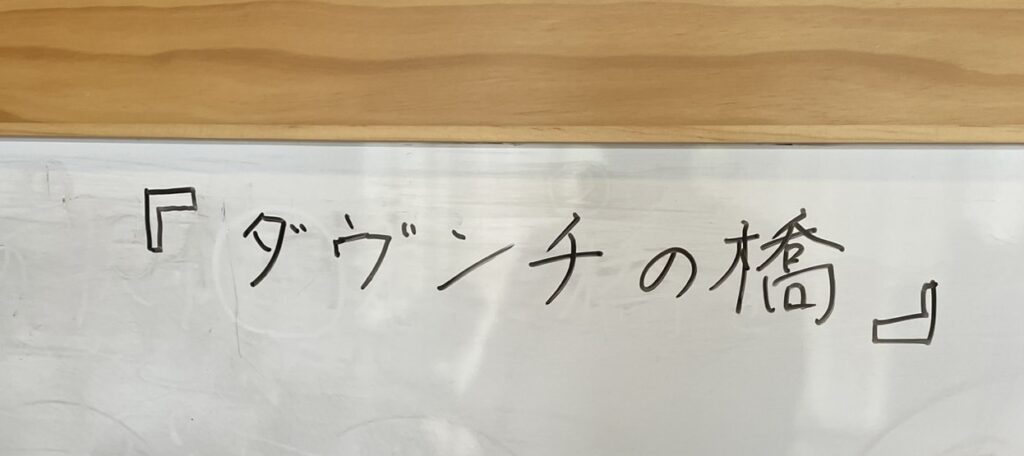 『ダヴンチの橋』